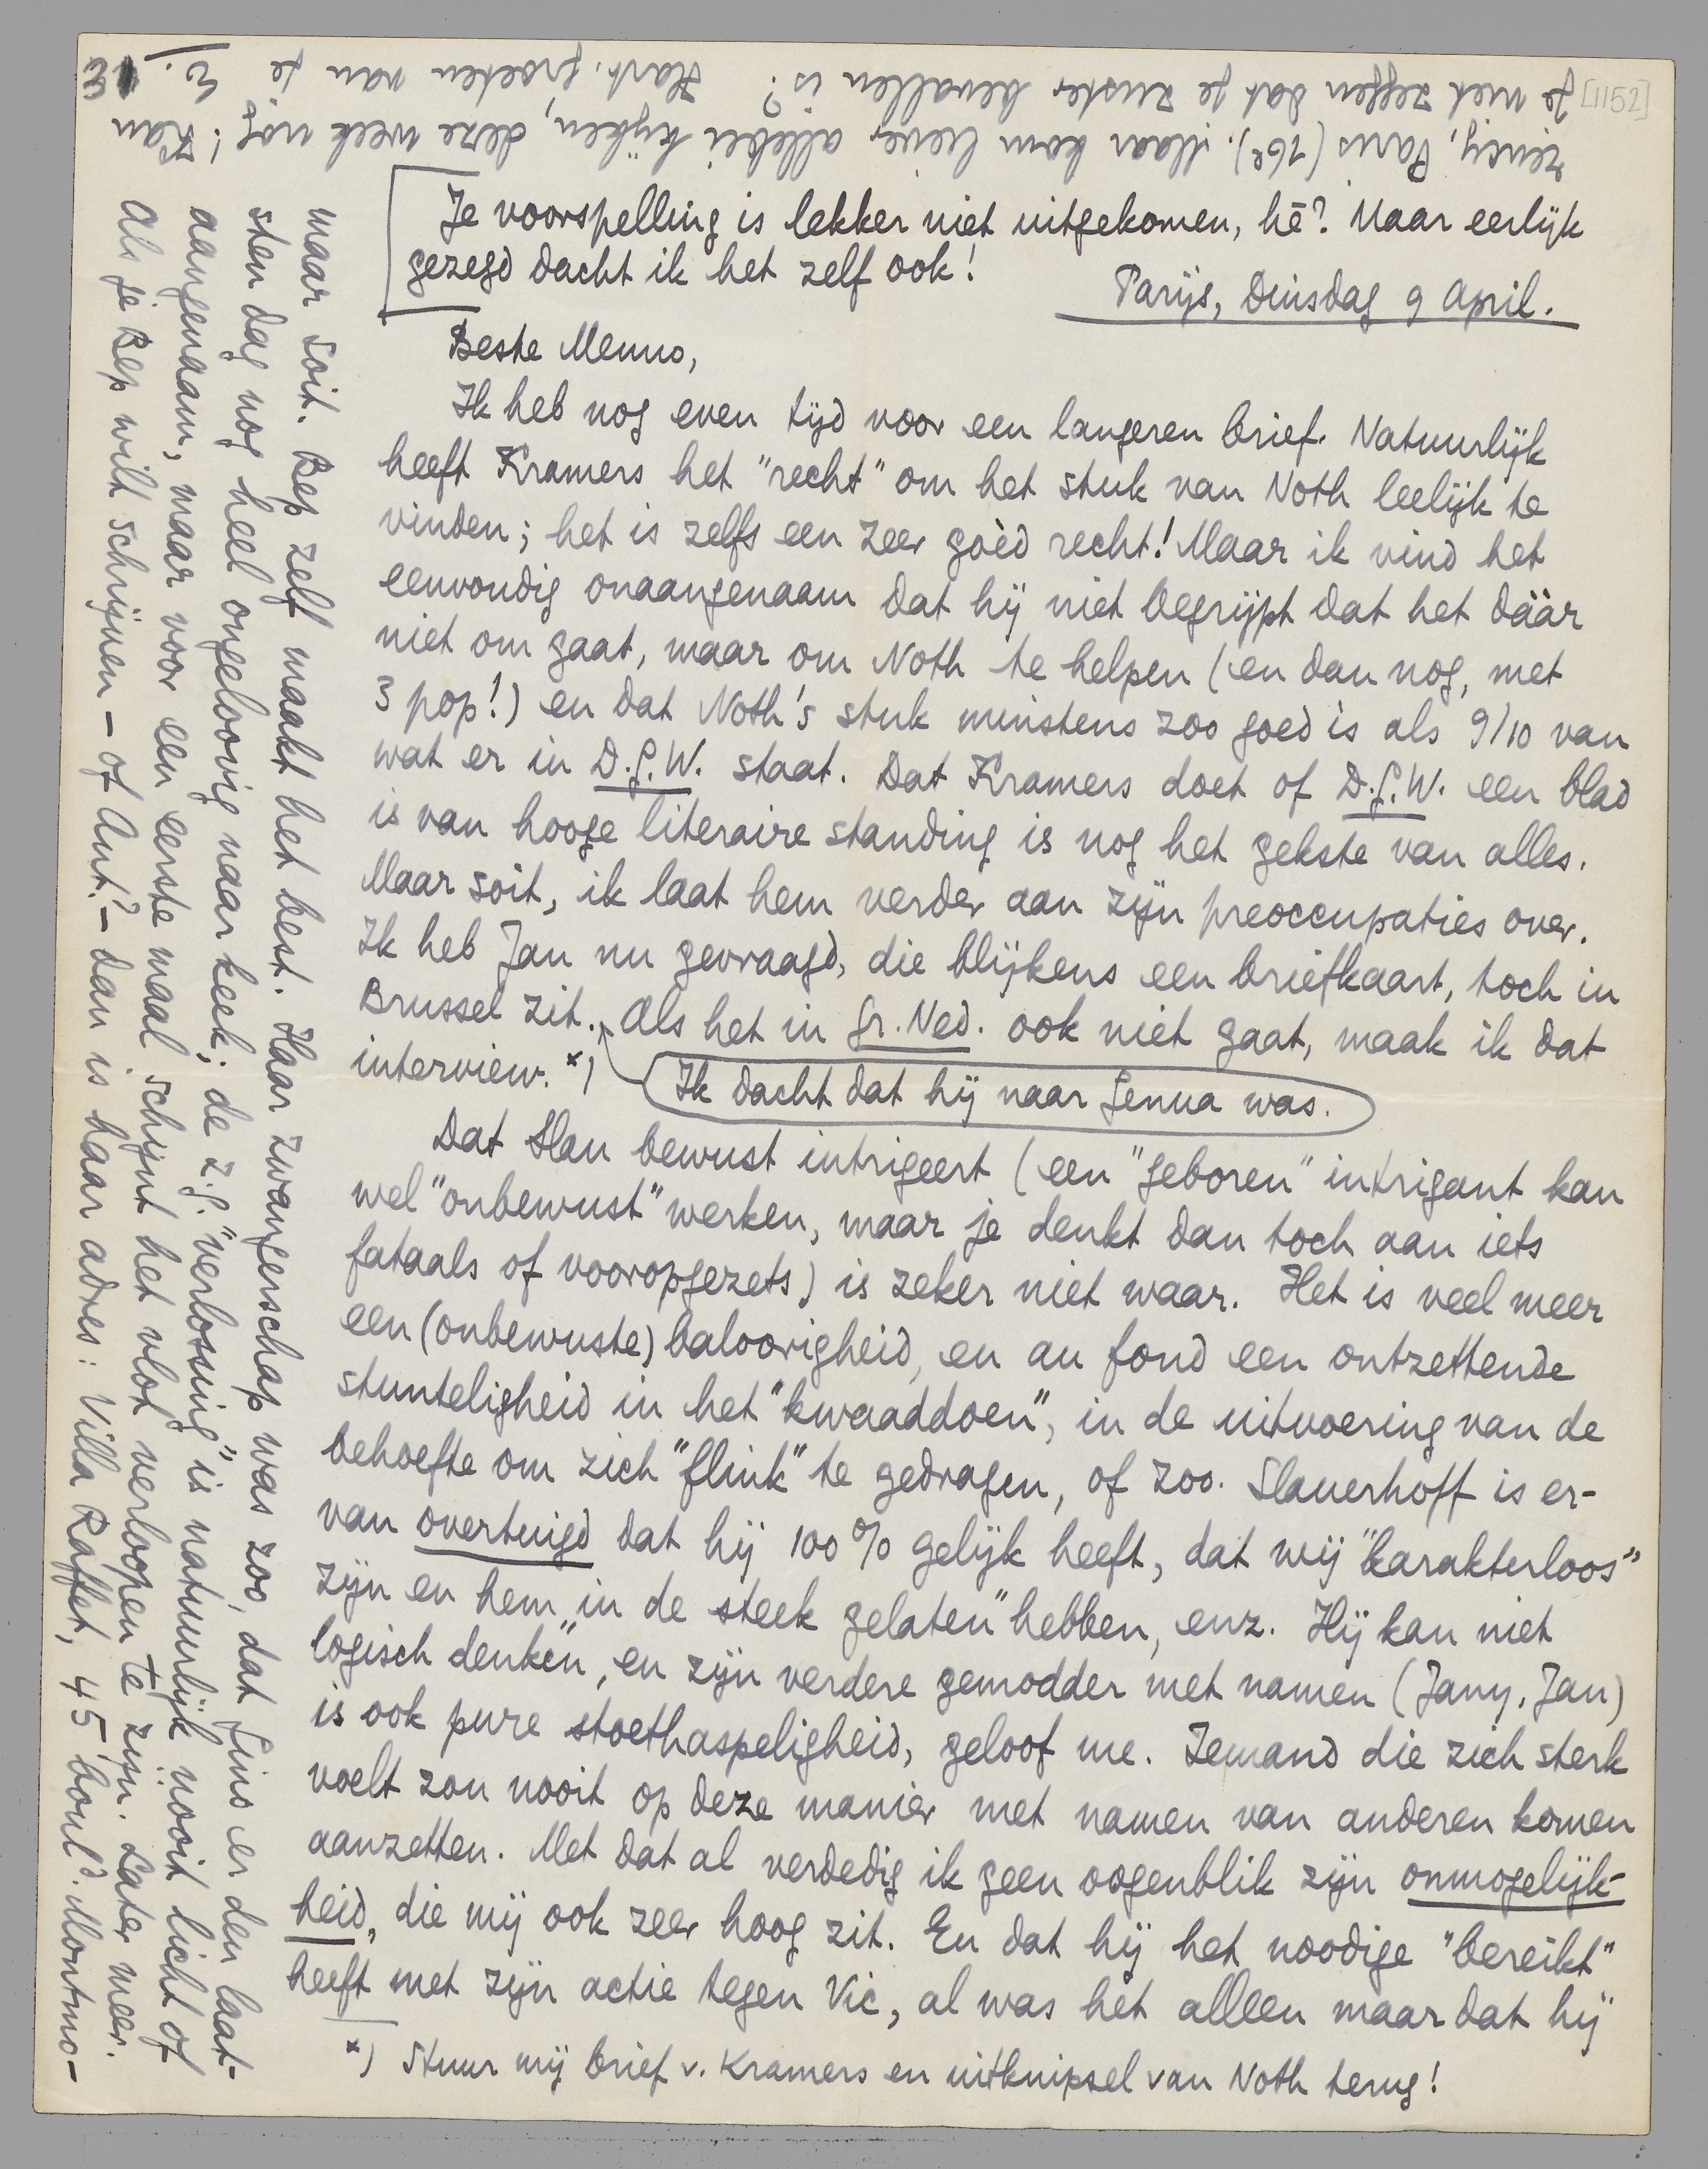 [1152]
Je voorspelling is lekker niet uitgekomen, hè? Maar eerlijk
gezegd dacht ik het zelf ook!
Parijs, Dinsdag 9 April.
Beste Menno,
Ik heb nog even tijd voor een langeren brief. Natuurlijk
heeft Kramers het "recht" om het stuk van Noth leelijk te
vinden; het is zelfs een zeer goèd recht! Maar ik vind het
eenvoudig onaangenaam dat hij niet begrijpt dat het dáár
niet om gaat, maar om Noth te helpen (en dan nog, met
3 pop!) en dat Noth's stuk minstens zoo goed is als 9/10 van
wat er in D.G.W. staat. Dat Kramers doet of D.G.W. een blad
is van hooge literaire standing is nog het gekste van alles.
Maar soit, ik laat hem verder aan zijn preoccupaties over.
Ik heb Jan nu gevraagd, die blijkens een briefkaart, toch in
Brussel zit. Als het in Gr. Ned. ook niet gaat, maak ik dat
interview. *)
Ik dacht dat hij naar Genua was.
Dat Slau bewust intrigeert (een "geboren" intrigant kan
wel "onbewust" werken, maar je denkt dan toch aan iets
fataals of vooropgezets) is zeker niet waar. Het is veel meer
een (onbewuste) baloorigheid, en au fond een ontzettende
stunteligheid in het "kwaaddoen", in de uitvoering van de
behoefte om zich "flink" te gedragen, of zoo. Slauerhoff is er-
van overtuigd dat hij 100% gelijk heeft, dat wij "karakterloos"
zijn en hem "in de steek gelaten" hebben, enz. Hij kan niet
"logisch denken", en zijn verdere gemodder met namen (Jany, Jan)
is ook pure stoethaspeligheid, geloof me. Iemand die zich sterk
voelt zou nooit op deze manier met namen van anderen komen
aanzetten. Met dat al verdedig ik geen oogenblik zijn onmogelijk-
heid, die mij ook zeer hoog zit. En dat hij het noodige "bereikt"
heeft met zijn actie tegen Vic, al was het alleen maar dat hij
*) Stuur mij brief v. Kramers en uitknipsel van Noth terug!
maar soit. Bep zelf maakt het best. Haar zwangerschap was zoo, dat Gino er den laat-
sten dag nog heel ongeloovig naar keek; de z.g. "verlossing" is natuurlijk nooit licht of
aangenaam, maar voor een eerste maal schijnt het vlot verloopen te zijn. Later meer.
Als je Bep wilt schrijven – of Ant? – dan is haar adres: Villa Raffet, 45 boul<sup>d</sup>. Montmo-
rency, Paris (16e). Maar kom liever allebei kijken, deze week nog! Kan
je niet zeggen dat je zuster bevallen is? Hart. groeten van je
E.